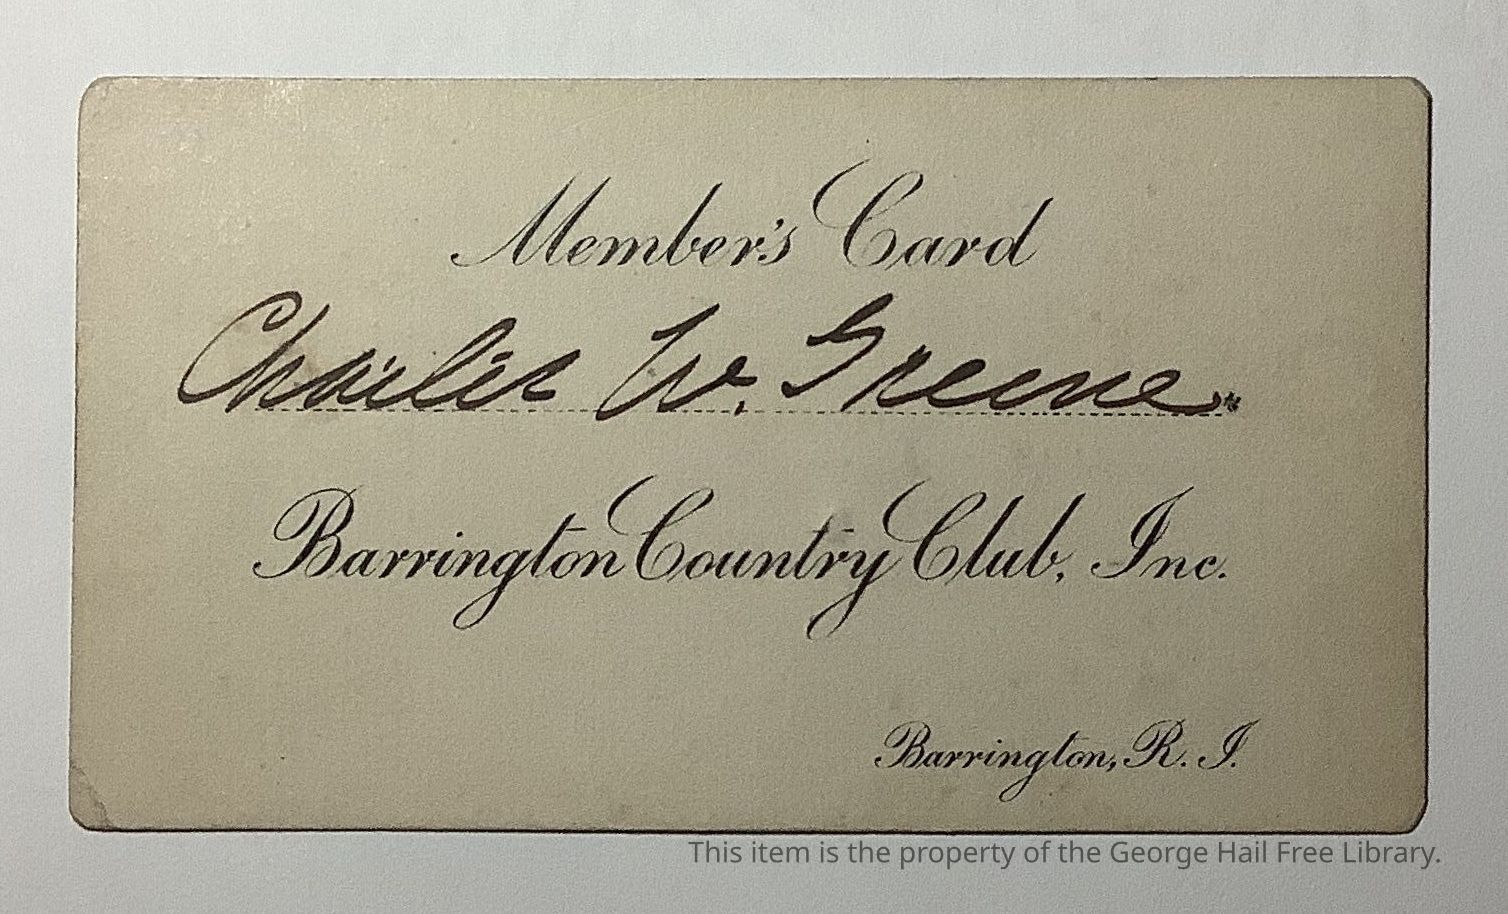 Member's Card
Charles W. Greene
Barrington Country Club, Inc.
Barrington, R. I.
This item is the property of the George Hail Free Library.